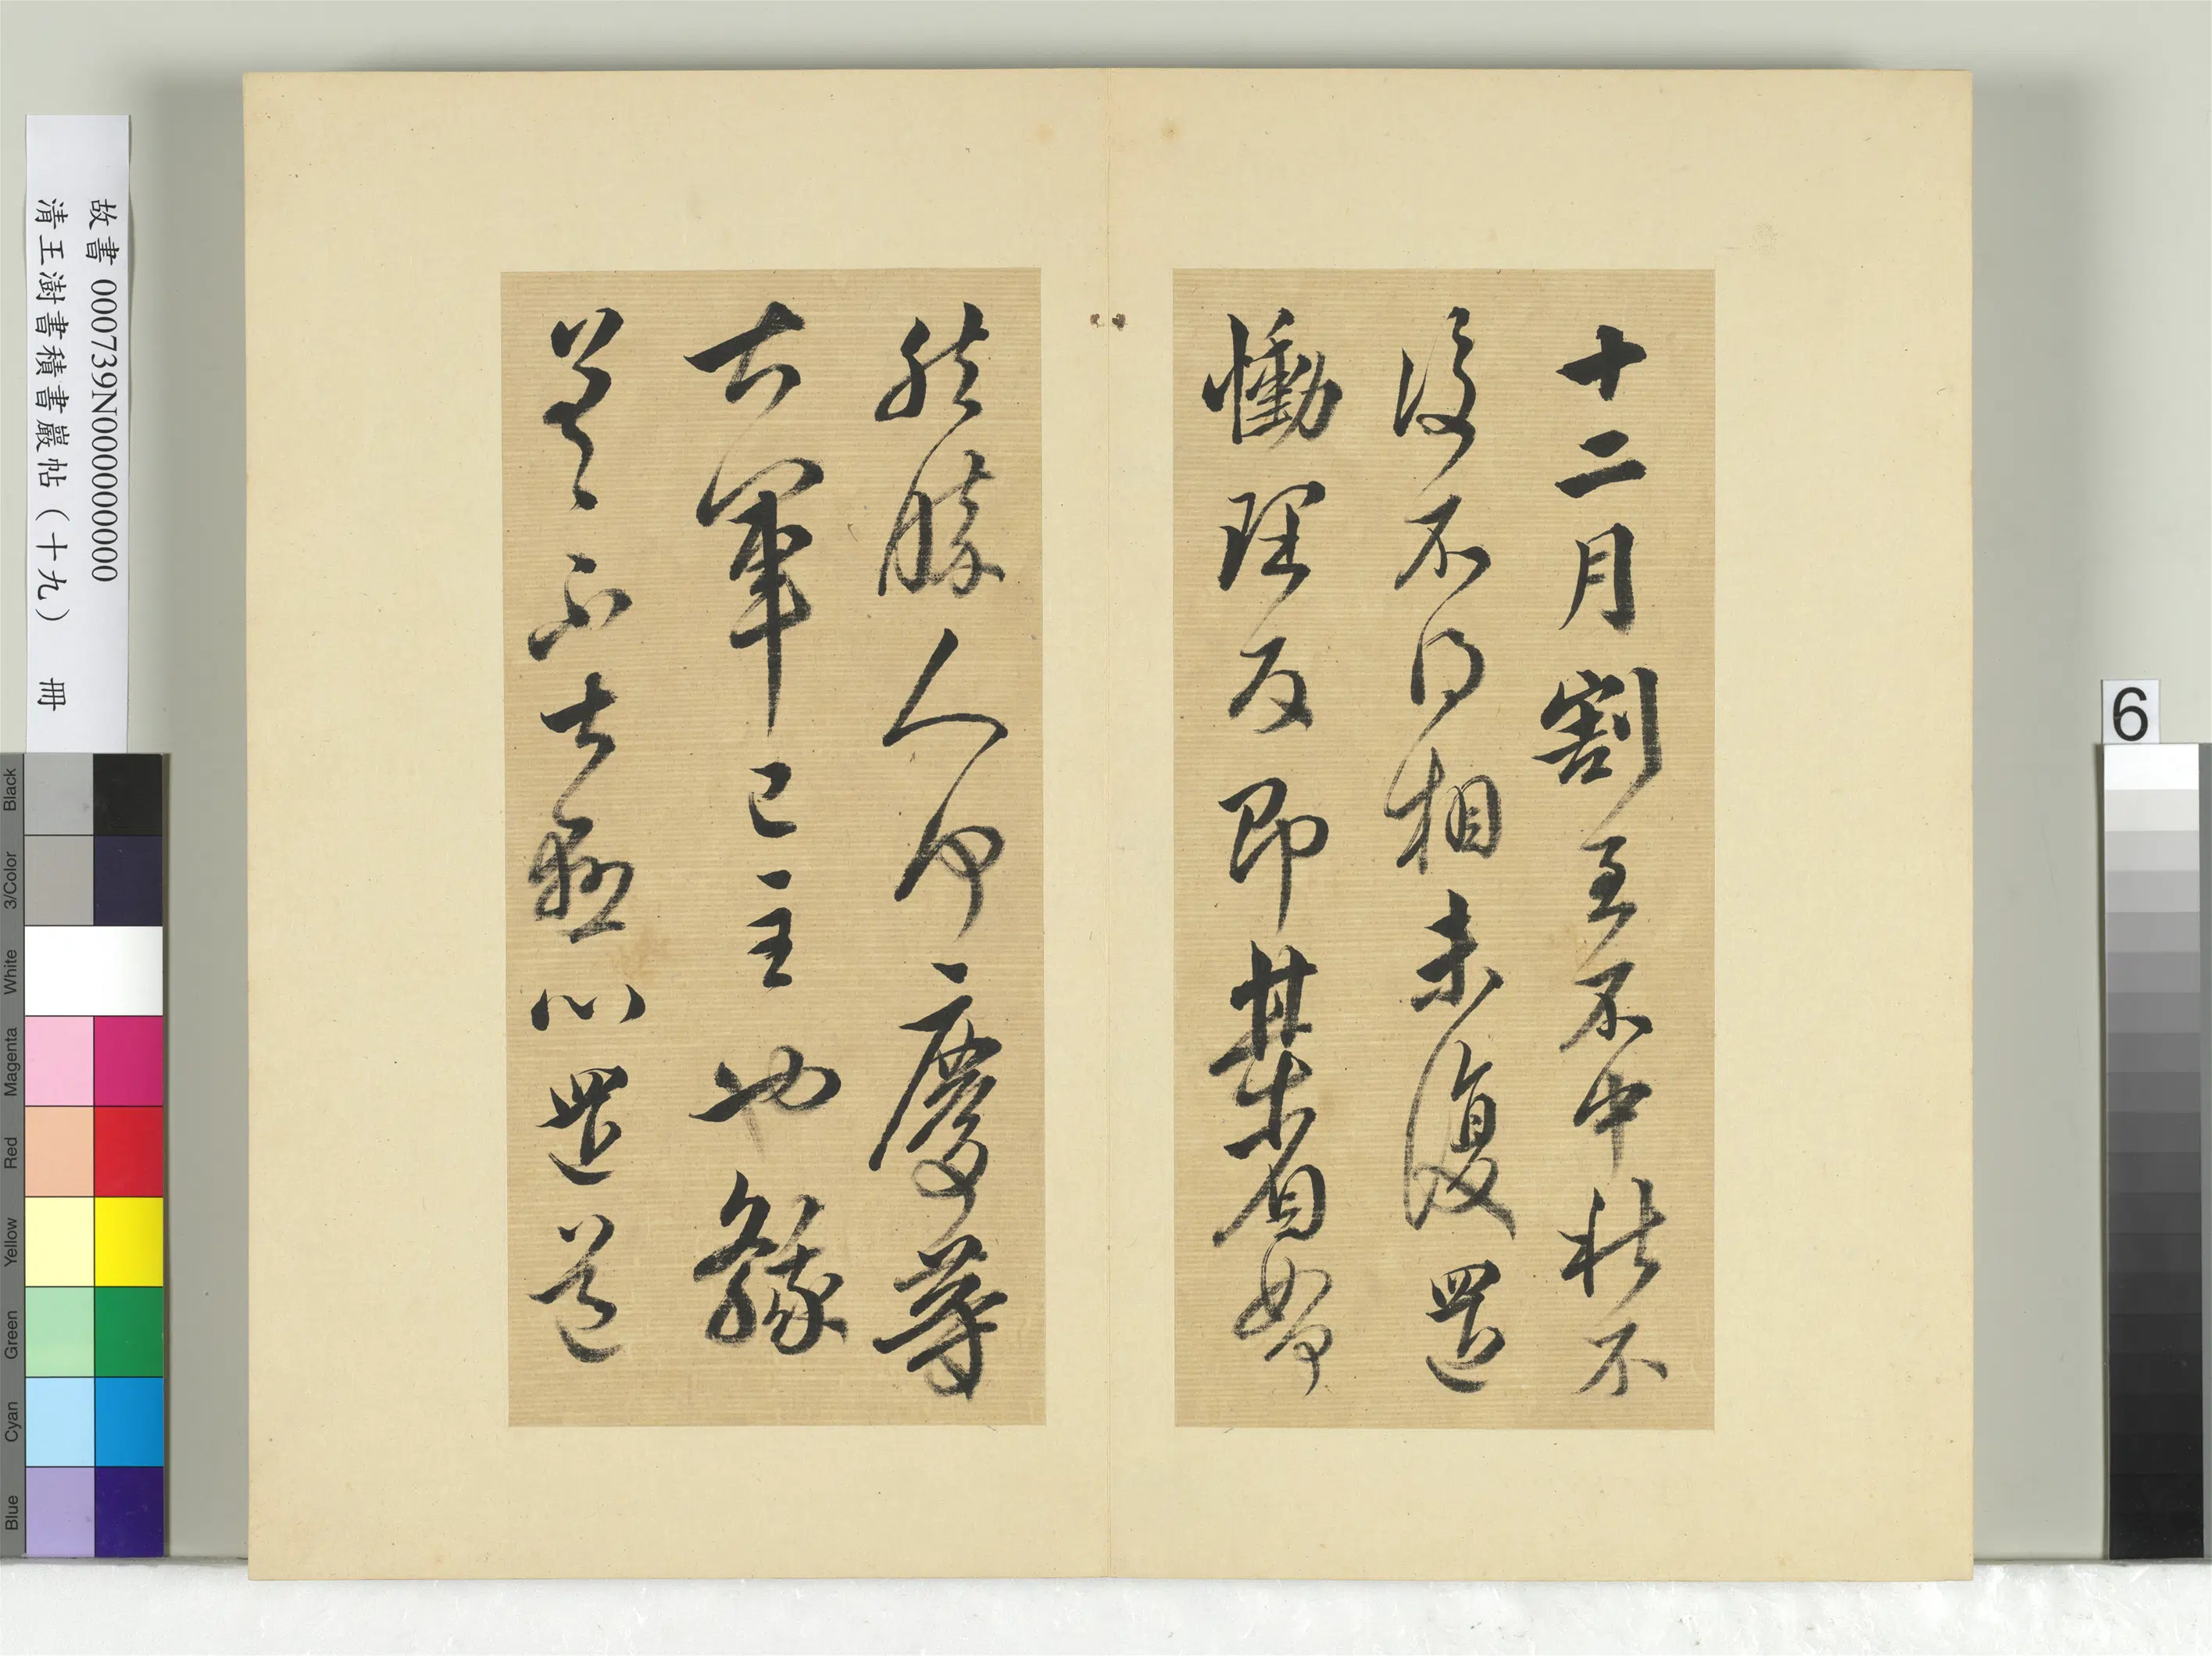 十二月割至不中秋不
復不得相未復還
慟理反即甚省如何
然勝人何慶等
大軍已主也
不大懸心還
故書 000739N000000000
清王澍書積書巖帖（十九） 冊
6
Black
3/Color
White
Magenta
Red
Yellow
Green
Cyan
Blue